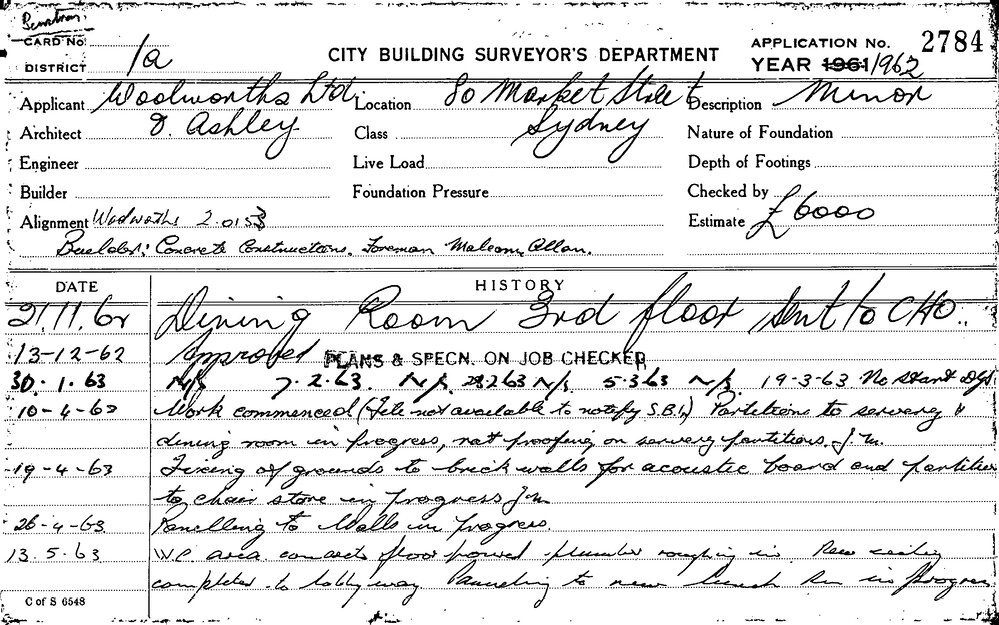 CARD No.
DISTRICT 1a
CITY BUILDING SURVEYOR'S DEPARTMENT
APPLICATION No. 2784
YEAR 1961/1962
Applicant Woolworths Ltd. Location 80 Market Street Description Minor
Architect J. Ashley Class Sydney Nature of Foundation
Engineer Live Load Depth of Footings
Builder Foundation Pressure Checked by
Alignment Woolworths 2.0153 Estimate £6000
Builder: Concrete Constructions. Foreman Malcom Allan.
DATE HISTORY
21.11.62 Dining Room 3rd floor sent to CHO.
13-12-62 Approved PLANS & SPECN. ON JOB CHECKED
30.1.63 N/S 7.2.63. N/S 28.2.63 N/S 5.3.63 N/S 19-3-63 No start
10-4-63 Work commenced (File not available to notify S.B.I.) Partitions to servery &
dining room in progress, rat proofing on servery partitions. J.M.
19-4-63 Fixing of grounds to brick walls for acoustic board and partition
to chair store in progress J.M.
26-4-63 Panelling to Walls in progress.
13.5.63 W.C. area concrete floor poured plumber roughing in New ceiling
completed to lobby way Panelling to new lunch Rm in progress
C of S 6548